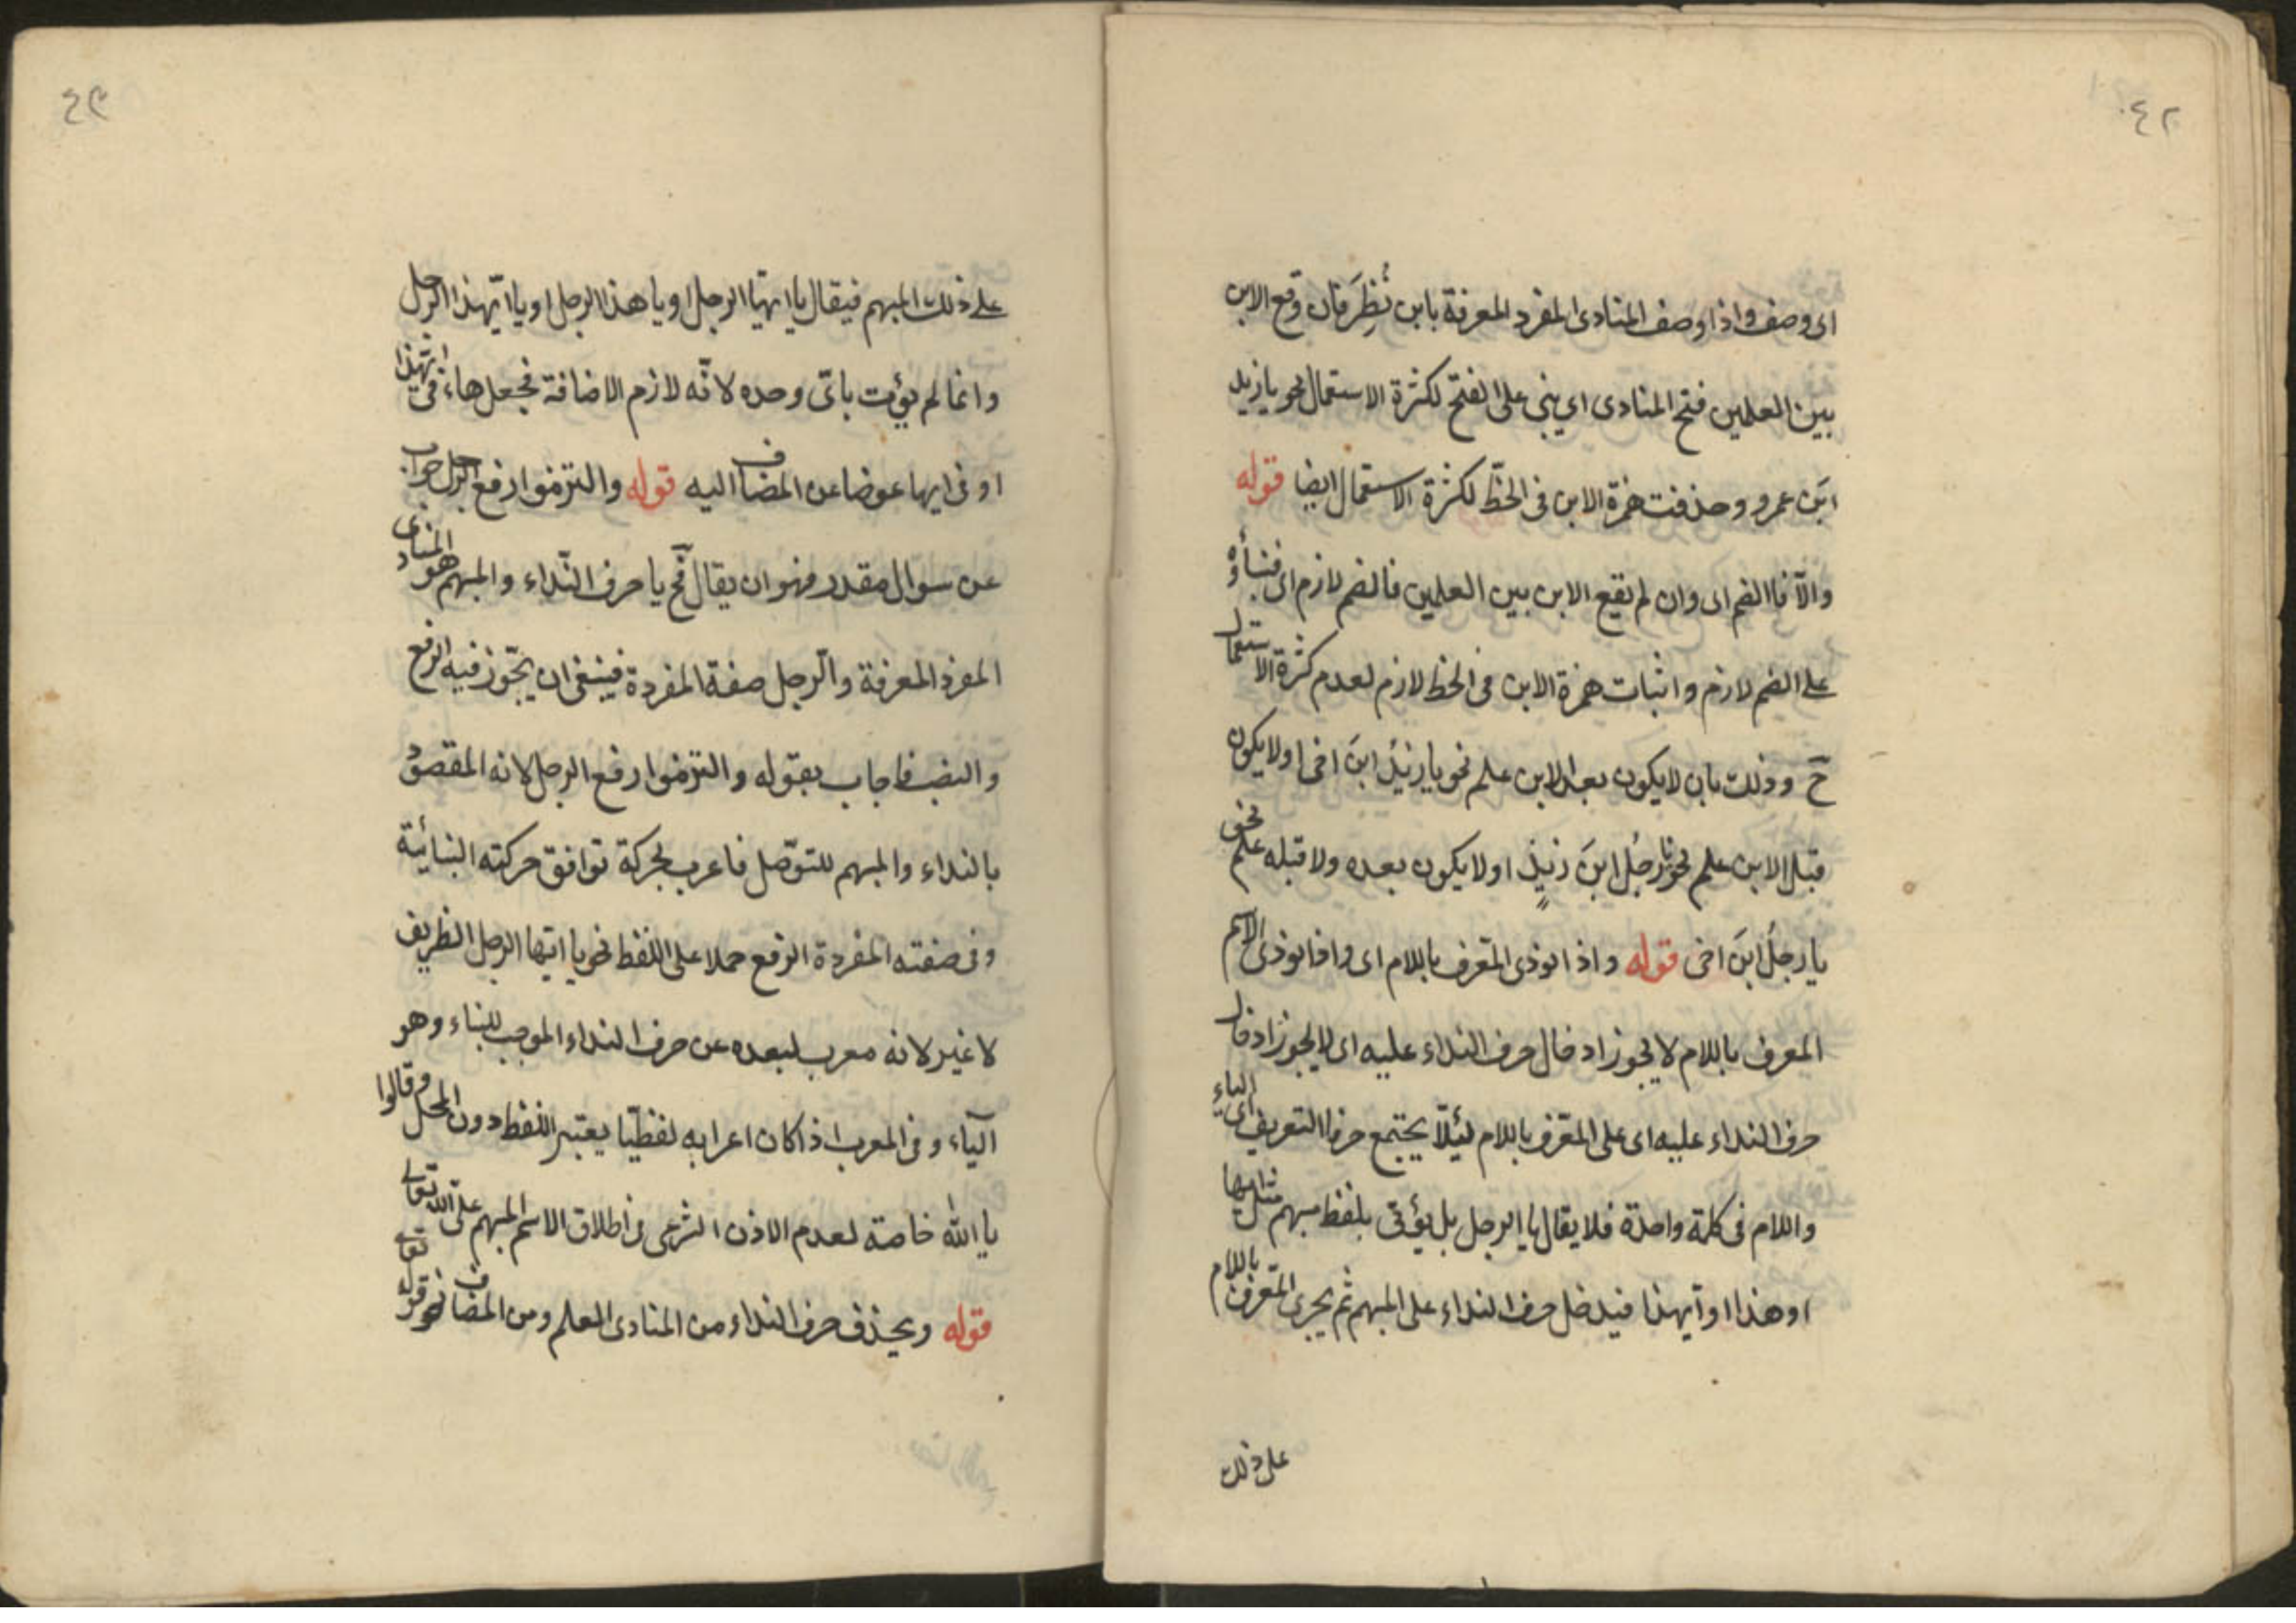 ٤٢
اى وصف واذا وصف المنادى المفرد المعرفة بابن نُظِرَ فان وقع الابن
بين العلمين فتح المنادى اى بنى على الفتح لكثرة الاستعمال نحو يا زيد
ابنَ عمرو وحذفت همزة الابن فى الخظّ لكثرة الاستعمال ايضا قوله
والّا فاالضم اى وان لم يقع الابن بين العلمين فالضم لازم اى فبناؤه
على الضم لازم واثبات همزة الابن فى الخظ لازم لعدم كثرة الاستعمال
حّ وذلك بان لا يكون بعد الابن علم نحو يا زيدُ ابنَ اخى او لا يكون
قبل الابن علم نحو يا رجلُ ابنَ زيدٍ او لا يكون بعده ولا قبله علم نحو
يا رجلُ ابنَ اخى قوله واذا نوذى المعّرف باللام اى واذا نوذى الاسم
المعرف باللام لا يجوز ادخال حرف النداء عليه اى لا يجوز ادخال
حرف النداء عليه اى على المعّرف باللام ليئلّا يجتمع حرفا التعريف اى الياء
واللام فى كلمة واحدة فلا يقال يا الرجل بل يؤتى بلفظ مبهم مثل ايها
او هذا او آيهذا فيدخل حرف النداء على المبهم ثم يجرى المعّرف باللام
على ذلك
٤٣
على ذلك المبهم فيقال يا ايّها الرجل او يا هذا الرجل او يا ايّهذا الرجل
وانما لم يؤت باىّ وحده لانّه لازم الاضافة فجعل هاء فى ايّهذا
او فى ايها عوضا عن المضاف اليه قوله والتزموا رفع الرجل جواب
عن سوال مقدر وهو ان يقال حّ يا حرف النّداء والمبهم هو المنادى
المفرد المعرفة والّرجل صفة المفردة فينبغى ان يجّوز فيه الرفع
والنصب فاجاب بقوله والتزموا رفع الرجل لانه المقصود
بالنداء والمبهم للتوّصل فاعرب بحركة توافق حركته البنائية
وفى صفته المفردة الرفع حملا على اللفظ نحو يا ايّها الرجل الظريف
لا غير لانه معرب لبعده عن حرف النداء الموجب للبناء وهو
الياء وفى المعرب اذا كان اعرابه لفظيّا يعتبر اللفظ دون المحل وقالوا
يا الله خاصة لعدم الاذن الشرعى فى اطلاق الاسم المبهم على الله تعالى
قوله ويحذف حرف النداء من المنادى العلم ومن المضاف نحو قوله تعالى